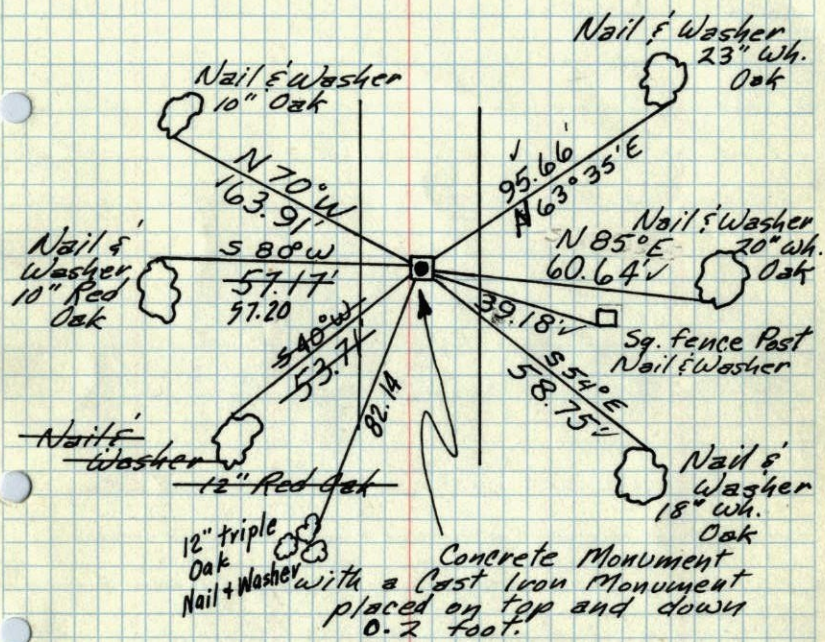 Nail & Washer
23" Wh.
Oak
Nail & Washer
10" Oak
N 70° W
163.91'
✓
95.66'
N 63° 35' E
Nail &
Washer
10" Red
Oak
S 88° W
57.17'
57.20
N 85° E
60.64' ✓
Nail & Washer
20" Wh.
Oak
39.18' ✓
Sq. fence Post
Nail & Washer
S 40° W
53.71'
82.14
S 54° E
58.75' ✓
Nail &
Washer
12" Red Oak
Nail &
Washer
18" Wh.
Oak
12" triple
Oak
Nail + Washer
Concrete Monument
with a Cast Iron Monument
placed on top and down
0.2 foot.